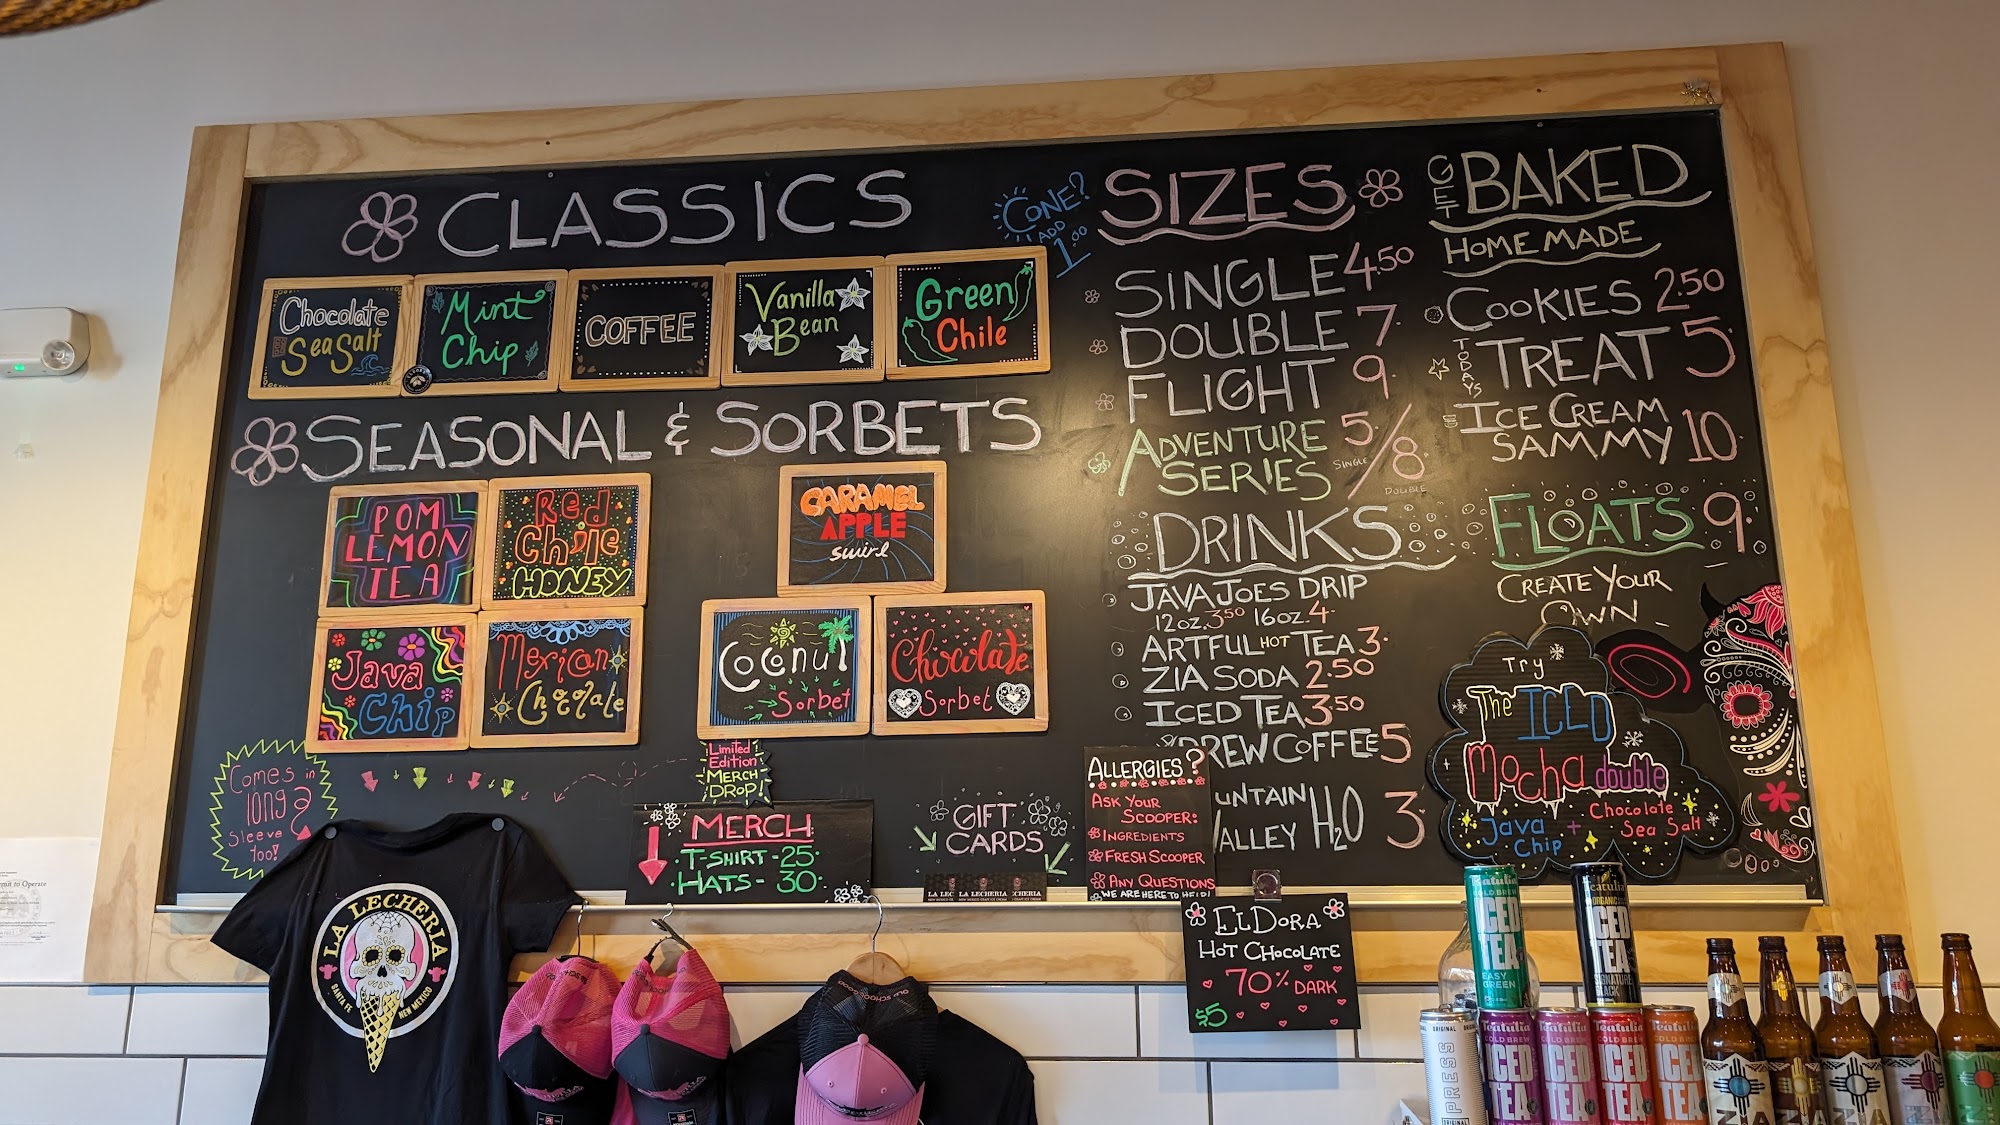 CLASSICS
CONE?
ADD
1.00
Chocolate
Sea Salt
Mint
Chip
COFFEE
Vanilla
Bean
Green
Chile
SEASONAL & SORBETS
POM
LEMON
TEA
Red
Chile
HONEY
CARAMEL
APPLE
swirl
Java
Chip
Mexican
Chocolate
Coconut
Sorbet
Chocolate
Sorbet
SIZES
SINGLE 4.50
DOUBLE 7.
FLIGHT 9.
ADVENTURE
SERIES
5/8
SINGLE
DOUBLE
DRINKS
JAVA JOES DRIP
12oz. 3.50 16oz. 4.
ARTFUL HOT TEA 3.
ZIA SODA 2.50
ICED TEA 3.50
BREW COFFEE 5
UNTAIN
VALLEY H2O 3.
GET BAKED
HOMEMADE
COOKIES 2.50
TODAYS
TREAT 5
ICE CREAM
SAMMY 10.
FLOATS 9.
CREATE YOUR
OWN
Try
The ICED
Mocha double
Java
Chip
+
Chocolate
Sea Salt
Comes in
long
Sleeve
too!
Limited
Edition
MERCH
DROP!
MERCH
T-SHIRT - 25.
HATS - 30.
GIFT
CARDS
LA LEC
LA LECHERIA
CHERIA
ALLERGIES?
ASK YOUR
SCOOPER:
INGREDIENTS
FRESH SCOOPER
ANY QUESTIONS
WE ARE HERE TO HELP!
ELDORA
HOT CHOCOLATE
70% DARK
$5
mit to Operate
LA LECHERIA
SANTA FE
NEW MEXICO
OLD SCHOOL GOOD
Teatulia
COLD BREW
ICED
TEA
EASY
GREEN
Teatulia
ORGANIC
ICED
TEA
SIGNATURE
BLACK
ORIGINAL
PRESS
ORIGINAL
Teatulia
COLD BREW
ICED
TEA
Teatulia
COLD BREW
ICED
TEA
Teatulia
COLD BREW
ICED
TEA
Teatulia
COLD BREW
ICED
TEA
ZIA